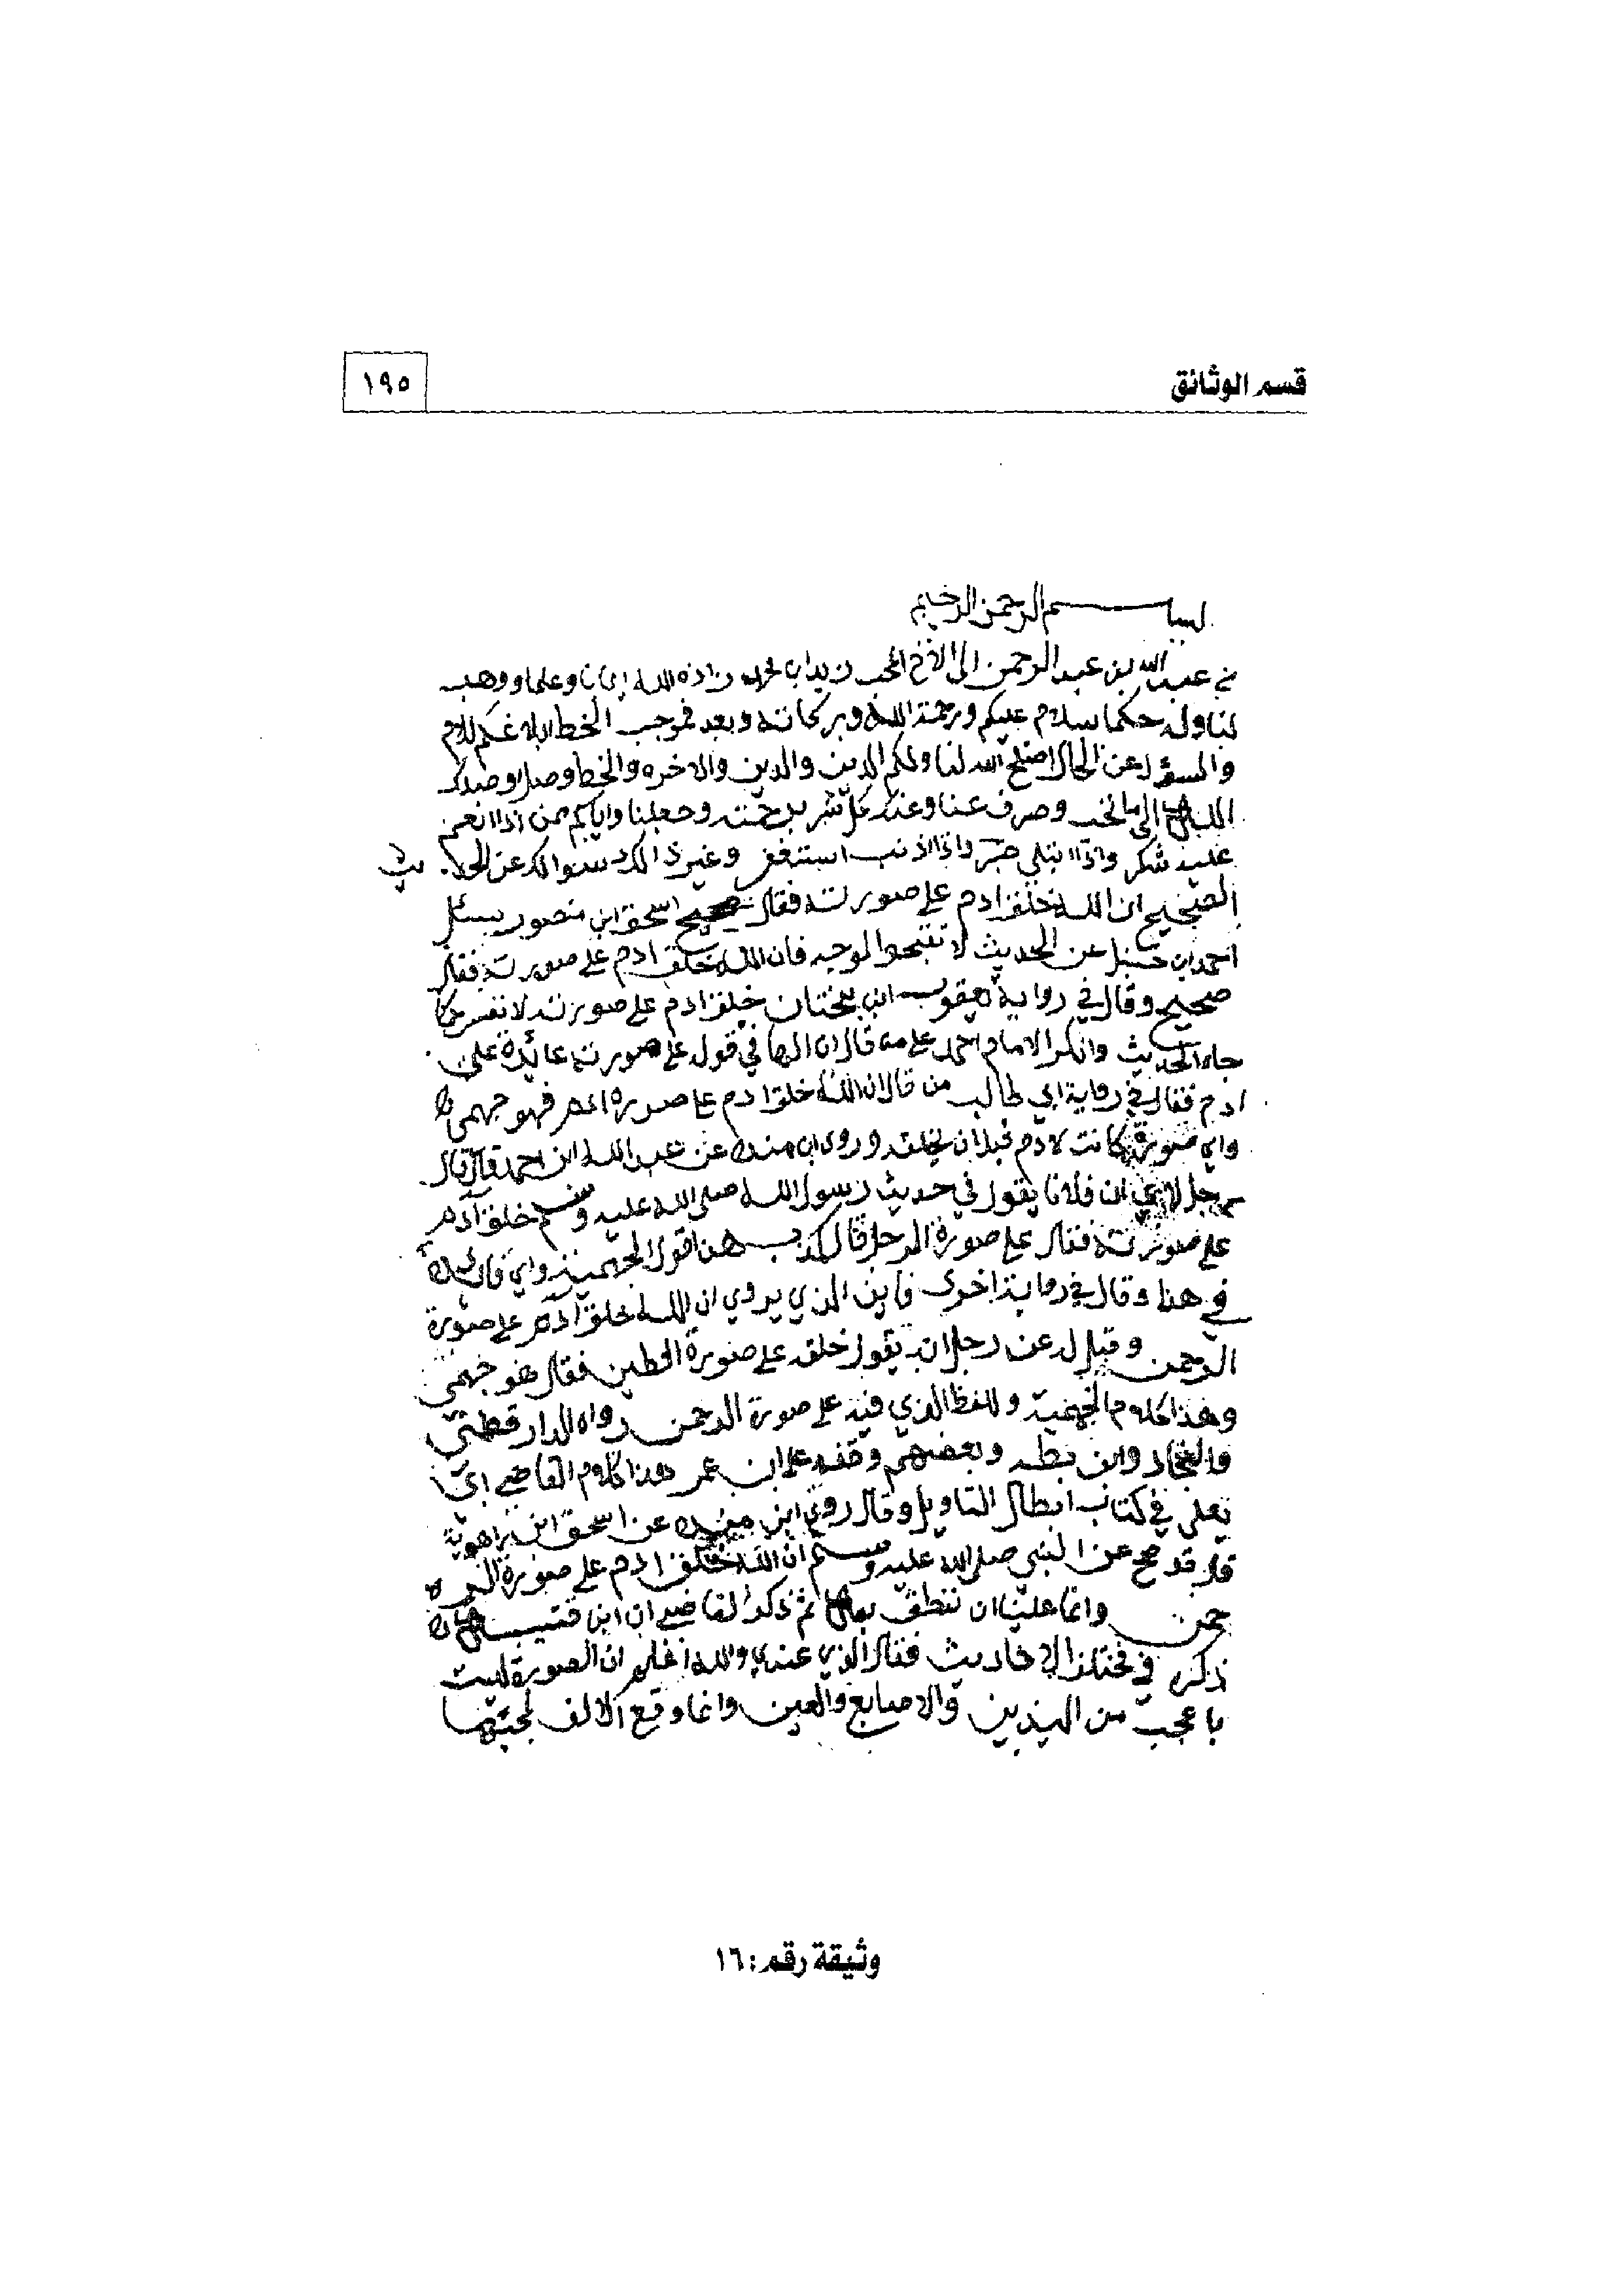 قسم الوثائق
١٩٥
بسم الرحمن الرحيم
من عبد الله بن عبد الرحمن الى الاخ المحب زيد ابن محمد زاده الله ايمانا وعلما ووهب
لنا وله حكما سلام عليكم ورحمة الله وبركاته وبعد فموجب الخط ابلاغكم السلام
والسؤال عن الحال اصلح الله لنا ولكم الدين والدنيا والاخره والخط وصل وصلك
الله الى ما تحب وصرف عنا وعنك كل شر برحمته وجعلنا واياكم ممن اذا انعم
عليه شكر واذا ابتلي صبر واذا اذنب استغفر وغير ذالك سؤالك عن الحديث
الصحيح ان الله خلق ادم على صورته فقال اسحق ابن منصور يسئل
احمد ابن حنبل عن الحديث لا تقبحوا الوجه فان الله خلق ادم على صورته فقال
صحيح وقال في رواية يعقوب ابن بختان خلق ادم على صورته لا نفسره كما
جاء الحديث وانكر الامام احمد على من قال ان الها في قول على صورته عائدة على
ادم فقال في رواية ابي طالب من قال ان الله خلق ادم على صورة ادم فهو جهمي
واي صورة كانت لادم قبل ان يخلقه وروى ابن منده عن عبد الله ابن احمد قال قال
رجل لابي ان فلانا يقول في حديث رسول الله صلى الله عليه وسلم خلق آدم
على صورته فقال على صورة الرجل قال كذب هذا قول الجهمية واي فائدة
في هذا وقال في رواية اخرى فاين الذي يروي ان الله خلق آدم على صورة
الرحمن وقيل له عن رجل انه يقول خلقه على صورة الطين فقال هو جهمي
وهذا كلام الجهمية واللفظ الذي فيه على صورة الرحمن رواه الدار قطني
والنجاد وابن بطه وبعضهم وقفه على ابن عمر هذا كلام القاضي ابي
يعلى في كتاب ابطال التاويل وقال روى ابن منده عن اسحق ابن راهوية
قال قد صح عن النبي صلى الله عليه وسلم ان الله خلق ادم على صورة الر
حمن وانما علينا ان ننطق به ثم ذكر القاضي ان ابن قتيبه
ذكره في مختلف الاحاديث فقال الذي عندي والله اعلم ان الصورة ليست
باعجب من اليدين والاصابع والعين وانما وقع الالف لمجيئها
وثيقة رقم: ١٦